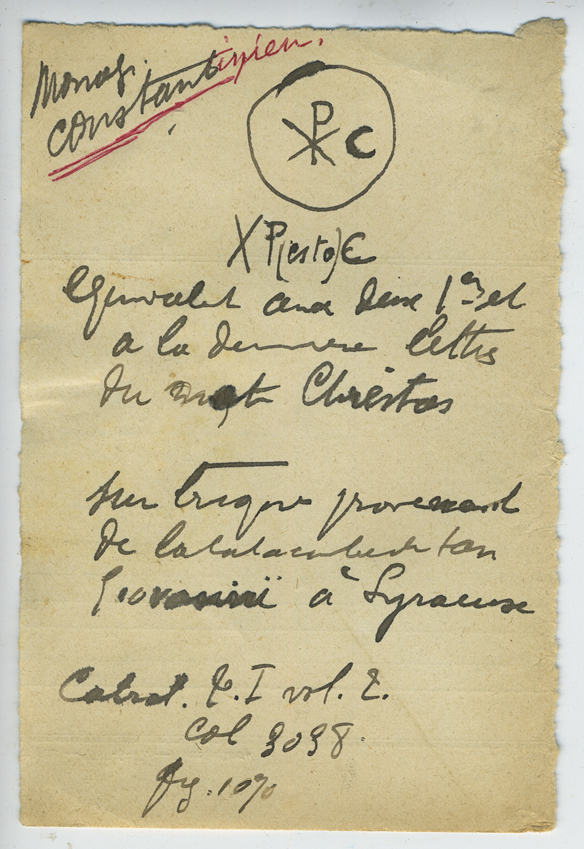 Monog.
Constantinien.
☧ C
XP(esto)C
équivalent aux deux 1ers et
a la derniere lettre
du mot Chrēstos
sur brique provenant
de la catacombe de San
Giovanni à Syracuse
Cabrol. T. I vol. 2.
col 3038.
fig. 1070